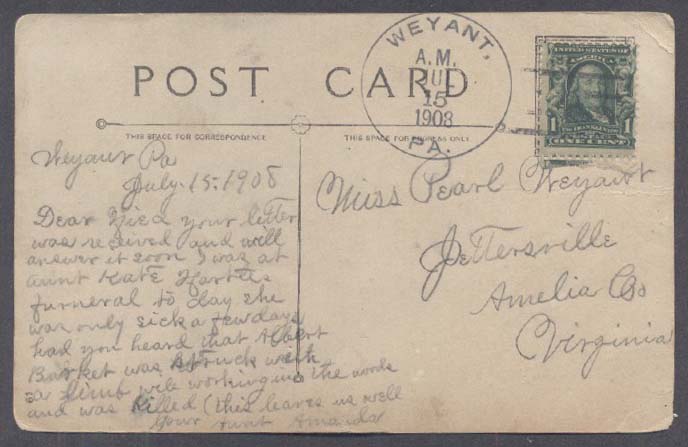 POST CARD
WEYANT,
A.M.
JUL
15
1908
PA.
UNITED STATES OF
AMERICA
1 1
ONE CENT
THIS SPACE FOR CORRESPONDENCE
THIS SPACE FOR ADDRESS ONLY
Weyant Pa
July. 15. 1908
Dear your letter
was received and will
answer it soon I was at
aunt Kate
furneral to day she
was only sick a few days
had you heard that Albert
Barket was struck with
a limb wile working in the woods
and was killed (this leaves us well
your aunt Amanda
Miss Pearl Weyant
Jettersville
Amelia Co
Virginia